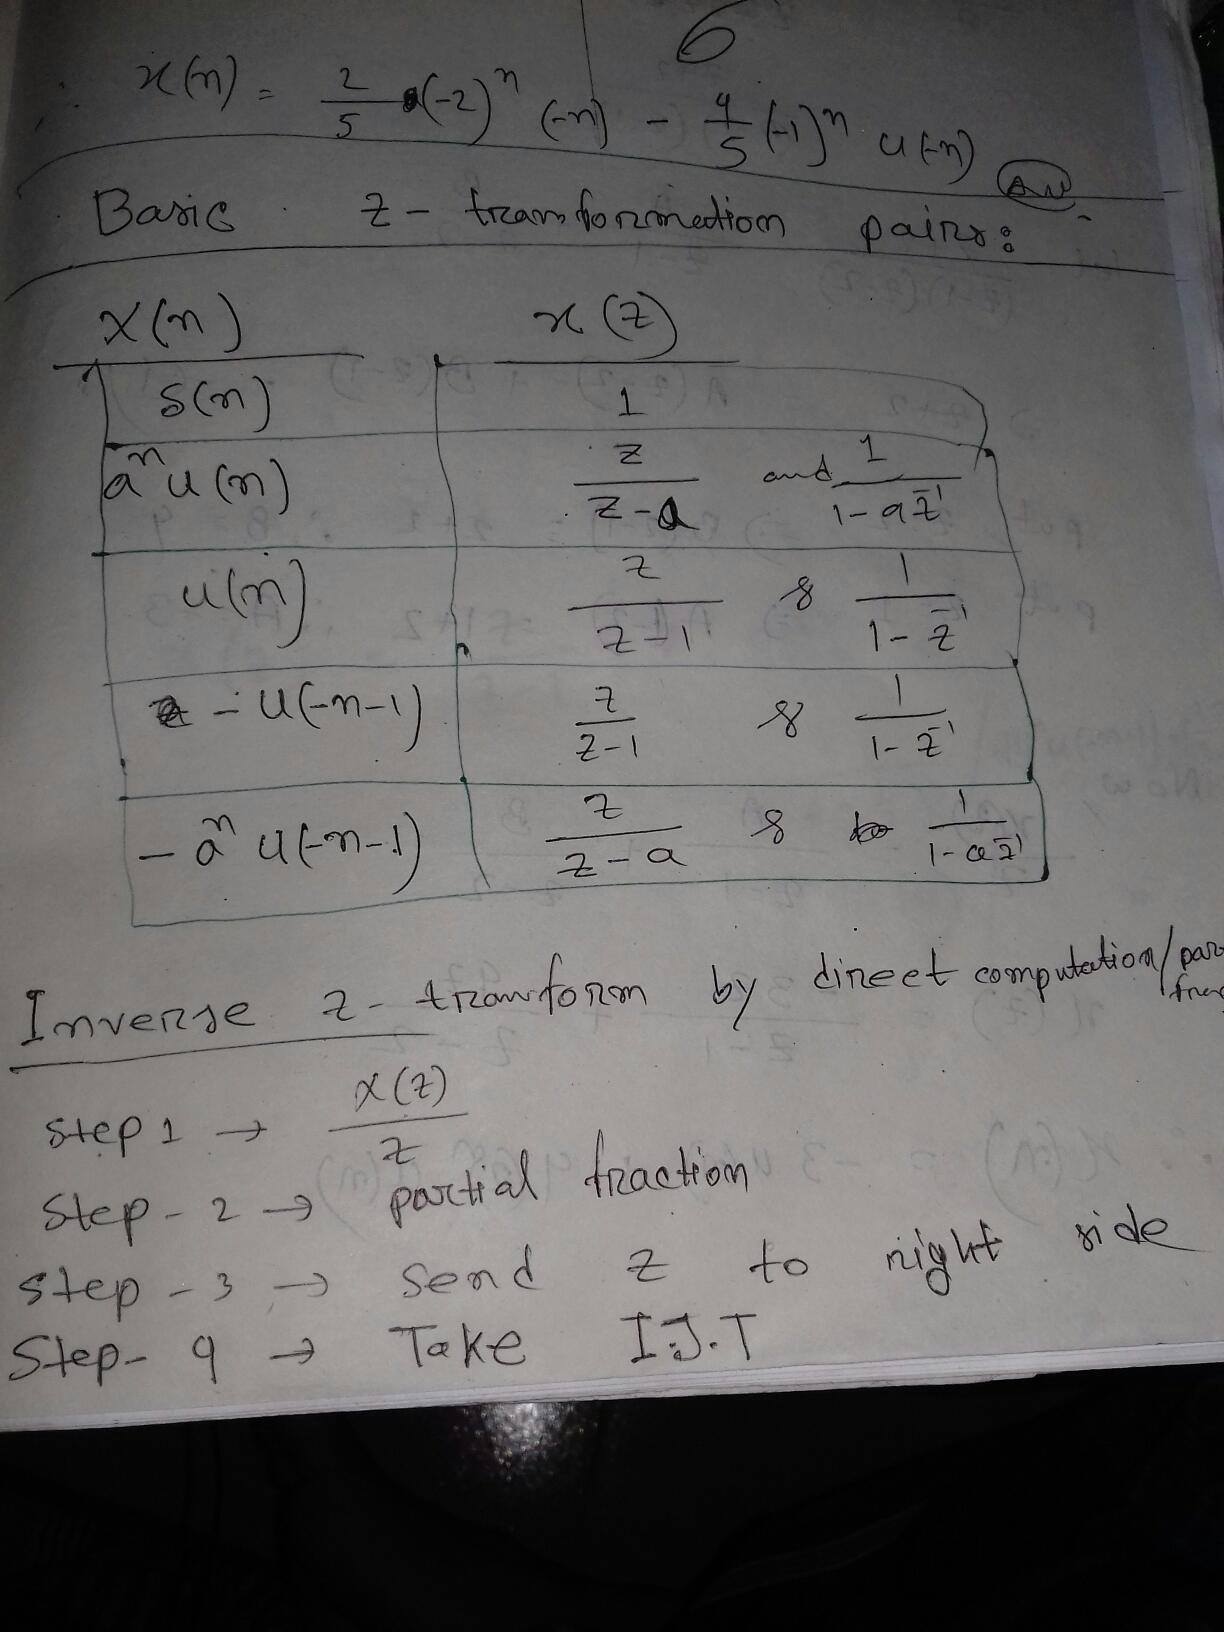 6
∴ x(n) = 2/5 (-2)^n (-n) - 4/5 (-1)^n u(-n) Ans
Basic z - transformation pairs:
X(n) x(z)
δ(n) 1
a^n u(n) z/(z-a) and 1/(1-az^-1)
u(n) z/(z-1) & 1/(1-z^-1)
- u(-n-1) z/(z-1) & 1/(1-z^-1)
- a^n u(-n-1) z/(z-a) & 1/(1-az^-1)
Inverse z - transform by direct computation/
step 1 → X(z)/z
Step - 2 → partial fraction
step - 3 → Send z to right side
Step - 4 → Take I.J.T